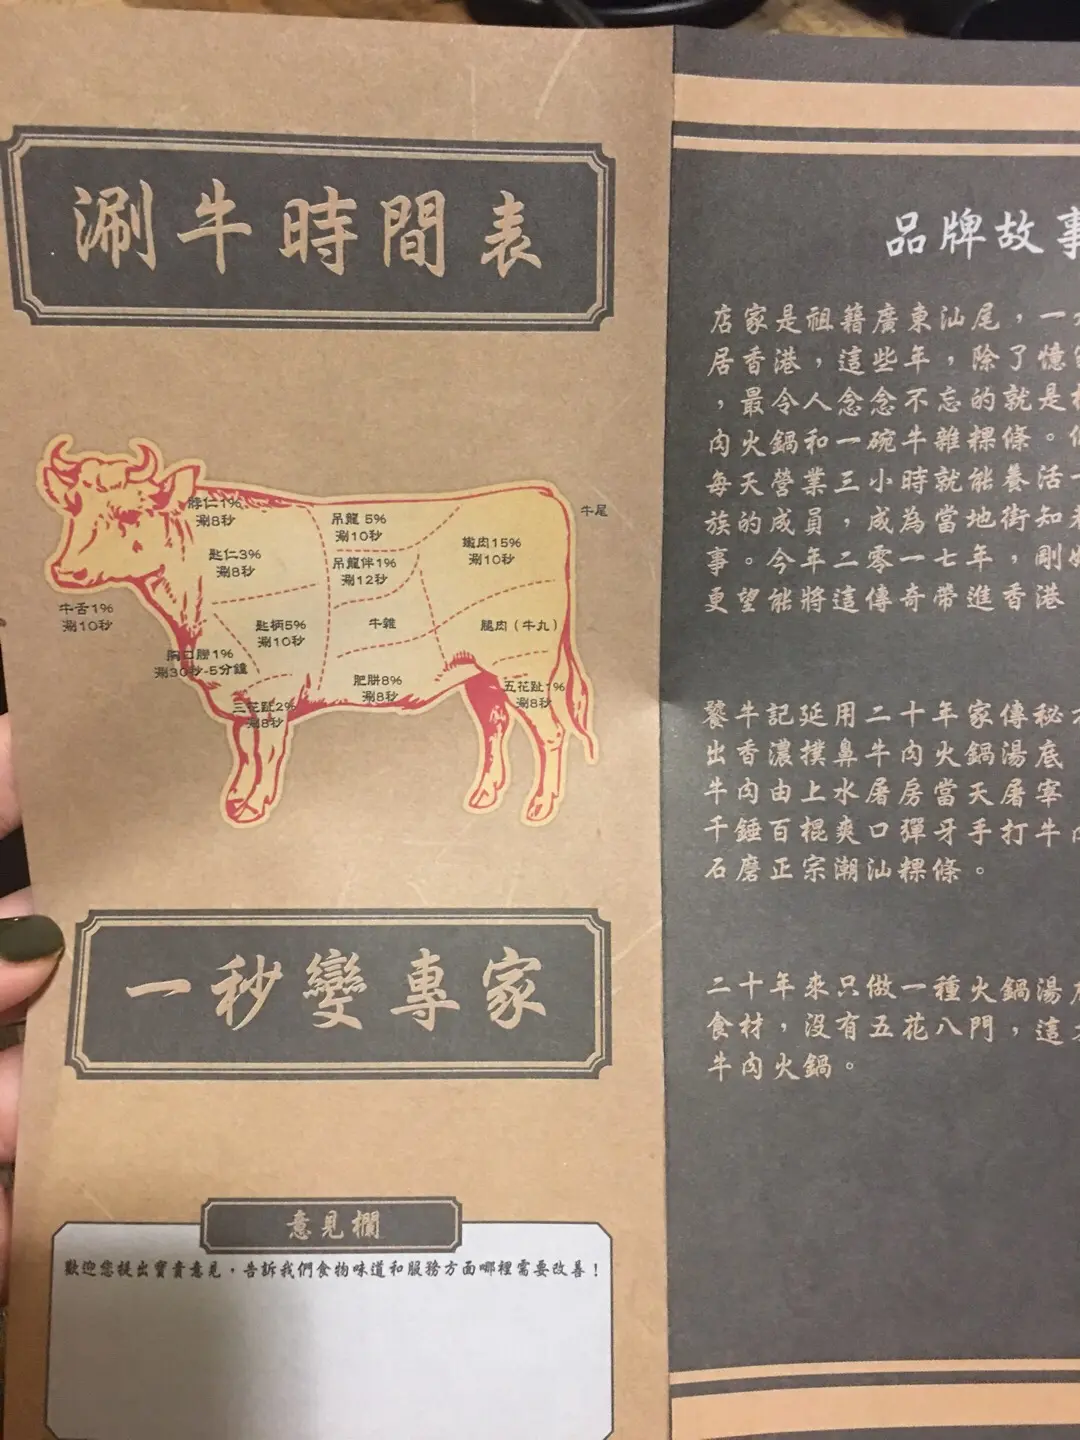 涮牛時間表
脖仁1%
涮8秒
吊龍 5%
涮10秒
牛尾
嫩肉15%
涮10秒
匙仁3%
涮8秒
吊龍伴1%
涮12秒
牛舌1%
涮10秒
匙柄5%
涮10秒
牛雜
腿肉(牛丸)
胸口膀1%
涮30秒-5分鐘
肥胼8%
涮8秒
五花趾1%
涮8秒
三花趾2%
涮8秒
一秒變專家
意見欄
歡迎您提出寶貴意見,告訴我們食物味道和服務方面哪裡需要改善!
品牌故事
店家是祖籍廣東汕尾,一
居香港,這些年,除了憶
,最令人念念不忘的就是
肉火鍋和一碗牛雜粿條。
每天營業三小時就能養活一
族的成員,成為當地街知
事。今年二零一七年,剛
更望能將這傳奇帶進香港
饕牛記延用二十年家傳秘
出香濃撲鼻牛肉火鍋湯底
牛肉由上水屠房當天屠宰
千錘百棍爽口彈牙手打牛
石磨正宗潮汕粿條。
二十年來只做一種火鍋湯
食材,沒有五花八門,這
牛肉火鍋。